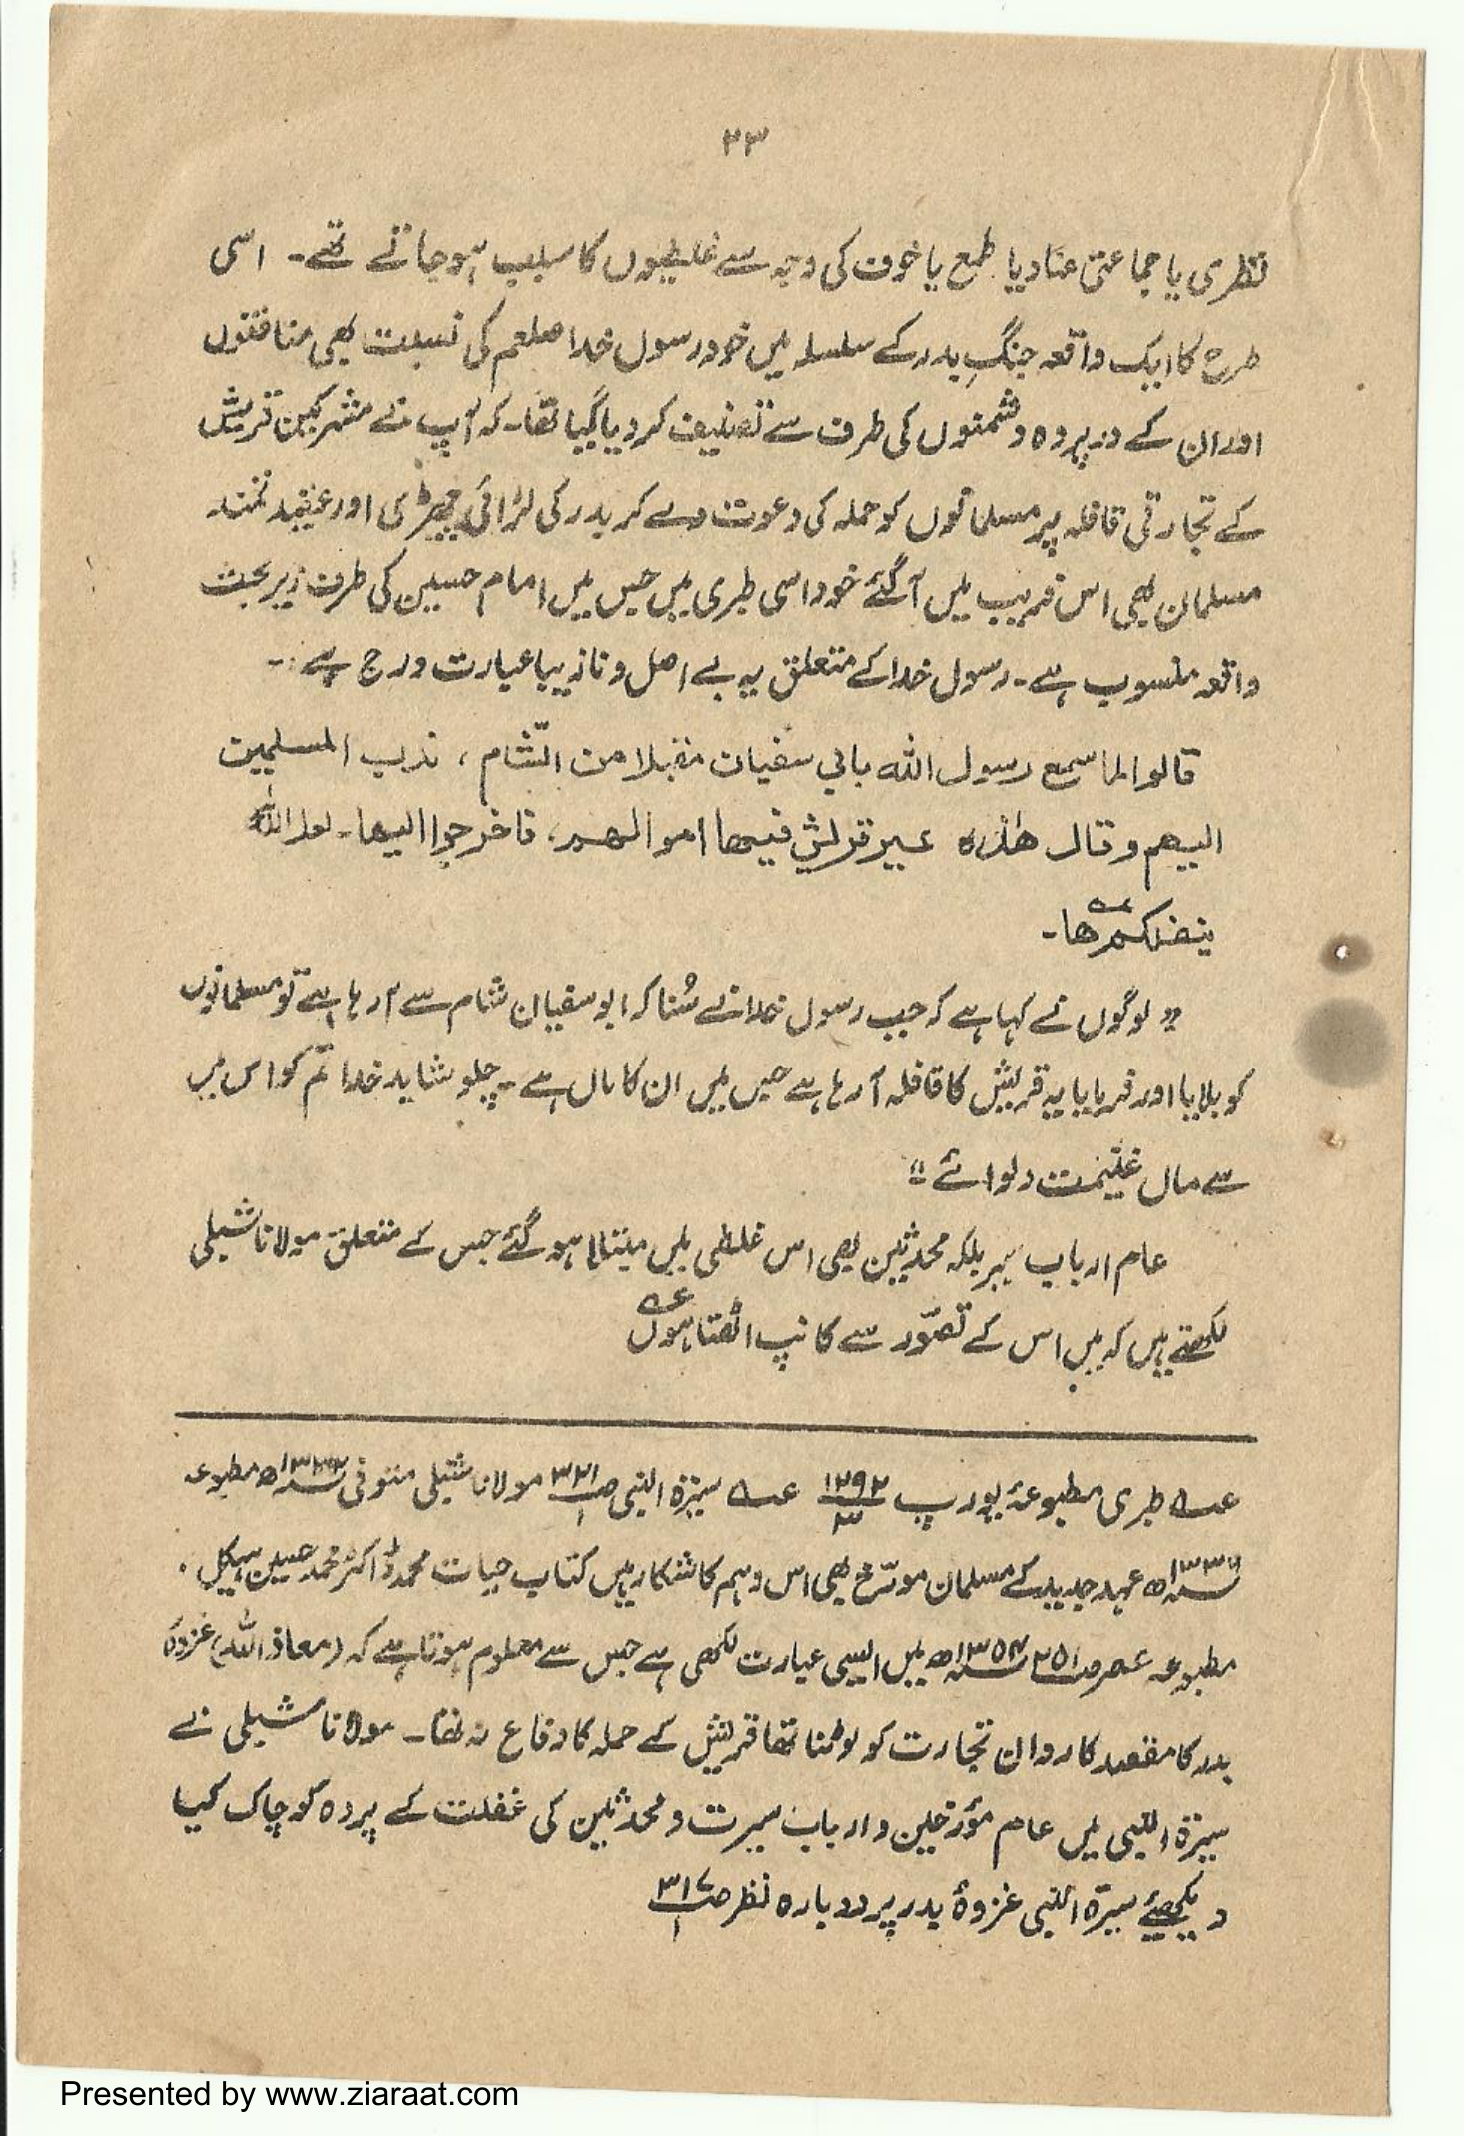 ۲۳
نظری یا جماعتی عناد یا طمع یا خوف کی وجہ سے غلطیوں کا سبب ہو جاتے تھے۔ اسی
طرح کا ایک واقعہ جنگِ بدر کے سلسلہ میں خود رسول خدا صلعم کی نسبت بھی منافقوں
اور ان کے در پردہ دشمنوں کی طرف سے تصنیف کر دیا گیا تھا۔ کہ آپ نے مشرکین قریش
کے تجارتی قافلہ پر مسلمانوں کو حملہ کی دعوت دے کر بدر کی لڑائی چھیڑی اور عقیدتمند
مسلمان بھی اس فریب میں آ گئے خود اسی طبری میں جس میں امام حسین کی طرف زیر بحث
واقعہ منسوب ہے۔ رسول خدا کے متعلق یہ بے اصل و نازیبا عبارت درج ہے:۔
قالوا لما سمع رسول اللہ بابی سفیان مقبلا من الشّام ، ندب المسلمین
الیھم وقال ھٰذہ عیر قریش فیھا اموالھم، فاخرجوا الیھا۔ لعل اللہ
ینفلکمھا۔ عہ
" لوگوں نے کہا ہے کہ جب رسول خدا نے سُنا کہ ابو سفیان شام سے آ رہا ہے تو مسلمانوں
کو بلایا اور فرمایا یہ قریش کا قافلہ آ رہا ہے جس میں ان کا مال ہے۔ چلو شاید خدا تم کو اس میں
سے مال غنیمت دلوائے "
عام ارباب سیر بلکہ محدثین بھی اس غلطی میں مبتلا ہو گئے جس کے متعلق مولانا شبلی
لکھتے ہیں کہ میں اس کے تصوّر سے کانپ اٹھتا ہوں عہ
عہ طبری مطبوعۂ یورپ ۱۲۹۲/۳ عہ سیرۃ النبی ص ۳۲۱/۱ مولانا شبلی متوفی ۱۳۳۲ھ مطبوعہ
۱۳۳۶ھ عہد جدید کے مسلمان مورّخ بھی اس وہم کا شکار ہیں کتاب حیات محمد ڈاکٹر محمد حسین ہیکل۔
مطبوعہ مصر ص ۲۵۱ ۱۳۵۴ھ میں ایسی عبارت لکھی ہے جس سے معلوم ہوتا ہے کہ (معاذ اللہ) غزوۂ
بدر کا مقصد کاروان تجارت کو لوٹنا تھا قریش کے حملہ کا دفاع نہ تھا۔ مولانا شبلی نے
سیرۃ النبی میں عام مؤرخین و ارباب سیرت و محدثین کی غفلت کے پردہ کو چاک کیا
دیکھئے سیرۃ النبی غزوۂ بدر پر دوبارہ نظر ص ۳۱۷/۱
Presented by www.ziaraat.com